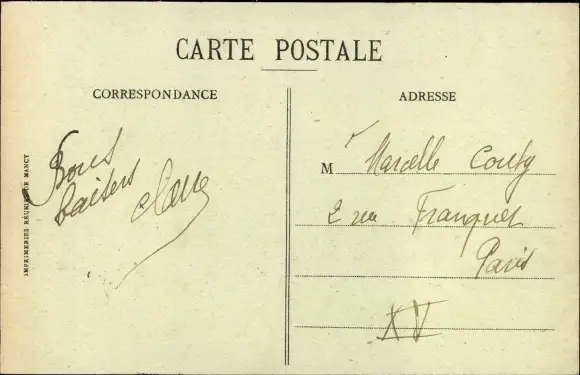 CARTE POSTALE
CORRESPONDANCE
ADRESSE
Bons
baisers
Claire
M Marcelle Couty
2 rue Franquet
Paris
XV
IMPRIMERIES RÉUNIES DE NANCY